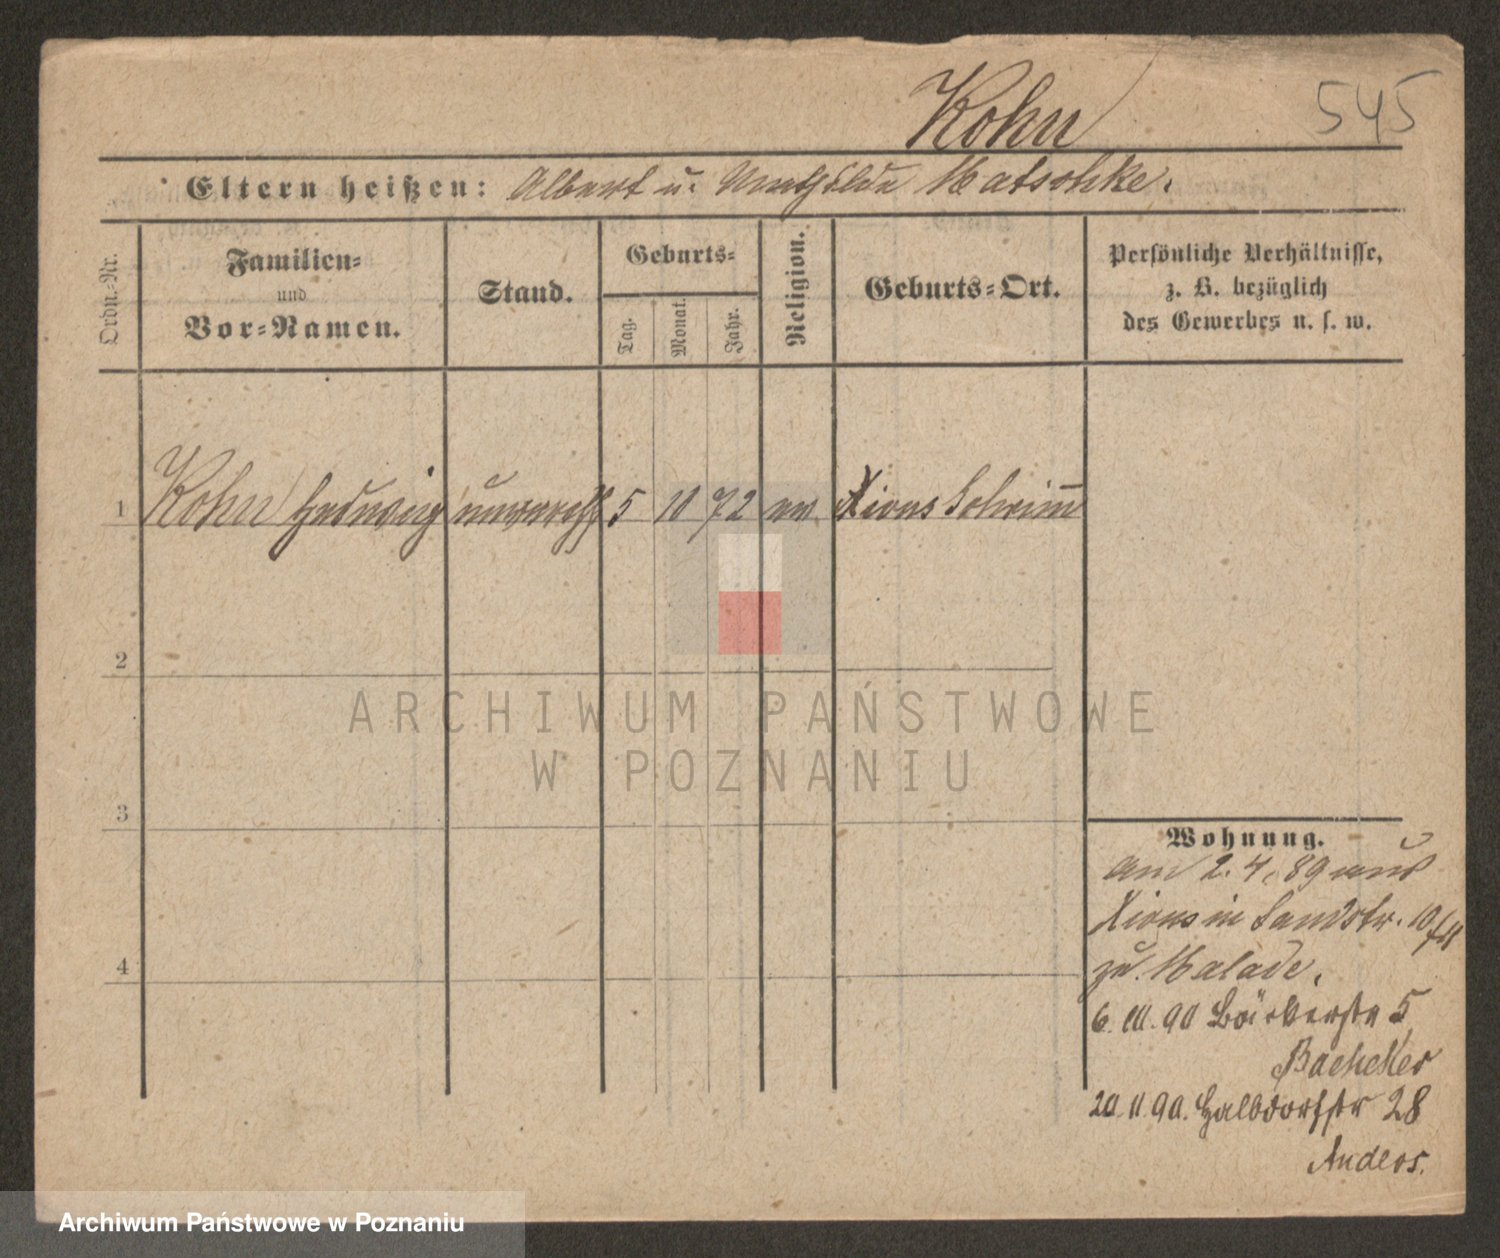 Kohn
545
Eltern heißen: Albert u. Mathilde Matschke.
Ordn.-Nr.
Familien-
und
Vor-Namen.
Stand.
Geburts-
Tag.
Monat.
Jahr.
Religion.
Geburts-Ort.
Persönliche Verhältnisse,
z. B. bezüglich
des Gewerbes u. s. w.
1 Kohn Hedwig unvereh 5 10 72 ev Xions Schrimm
2
3
4
Wohnung.
am 2. 4. 89 aus
Xions in Landstr. 10/11
zu Malade.
6. 10. 90 Bäckerstr 5
20. 11. 90. Halbdorfstr 28
ARCHIWUM PAŃSTWOWE
W POZNANIU
Archiwum Państwowe w Poznaniu